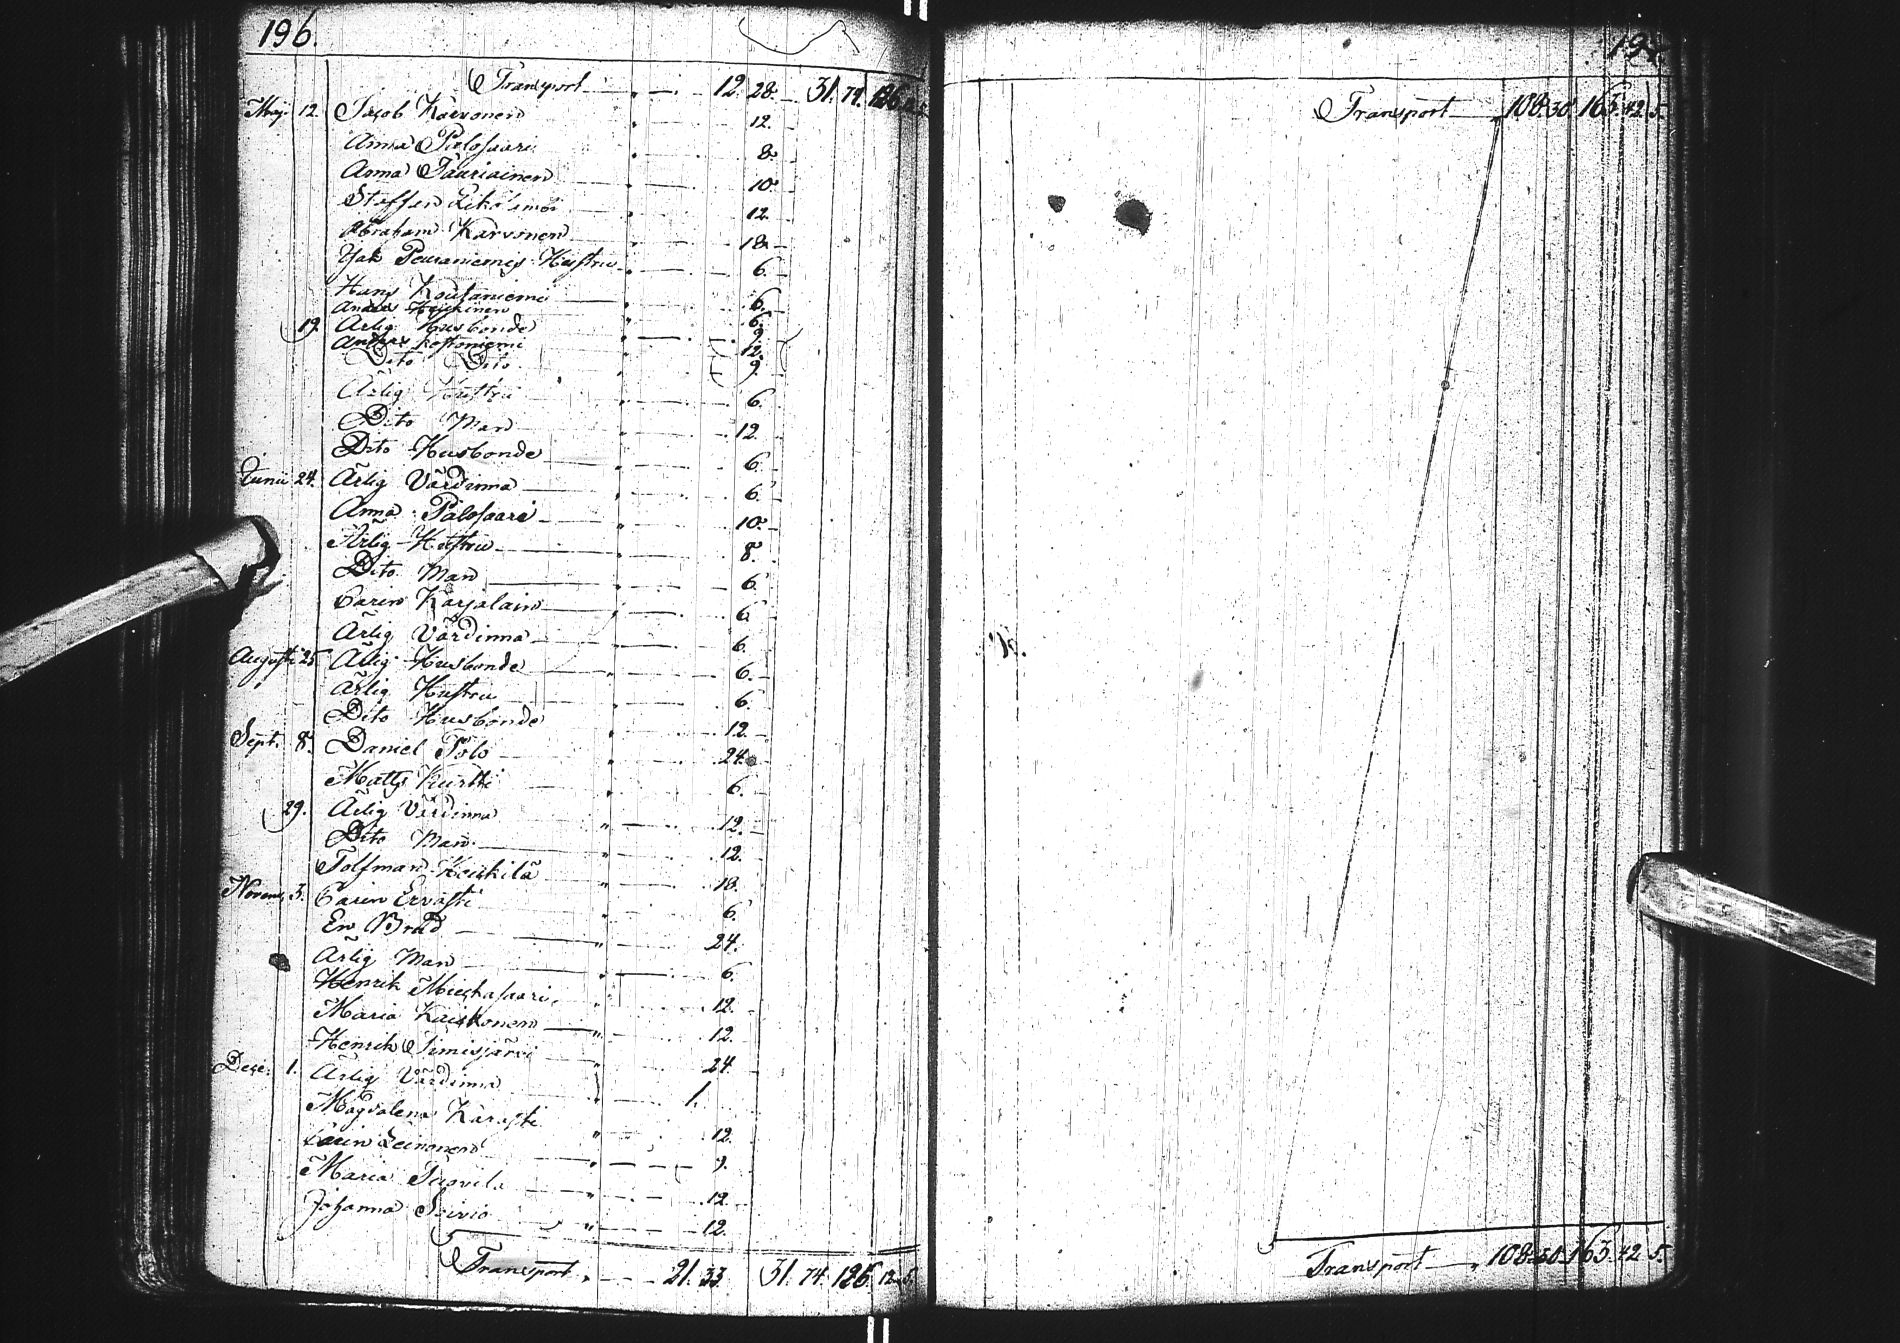 196.
Transport " 12. 28. 31. 74. 126. 12. 5.
Maj. 12. Jacob Karvonen " 12.
Anna Palosaari " 8.
Anna Tauriainen " 10.
Steffen " 12.
Abraham Karvonen " 18.
Isak Peuraniemis Hustru " 6.
Hans Koutaniemi " 6.
Anders Heikkinen " 6.
19. Ärlig Husbonde " 9.
Anders " 12.
Dito Dito " 9.
Ärlig Hustru " 6.
Dito Man " 12.
Dito Husbonde " 6.
Junii 24. Ärlig Värdinna " 6.
Anna Palosaari " 10.
Ärlig Hustru " 8.
Dito Man " 6.
Carin Karjalain " 6.
Ärlig Värdinna " 6.
Augusti 25. Ärlig Husbonde " 6.
Ärlig Hustru " 6.
Dito Husbonde " 12.
Sept. 8. Daniel Polo " 24.
Matts Kurtti " 6.
29. Ärlig Värdinna " 12.
Dito Man " 12.
Tolfman Heikkilä " 18.
Novem. 3. Carin Ervasti " 6.
En Brud " 24.
Ärlig Man " 6.
Henrik " 12.
Maria " 12.
Henrik Timisjärvi " 24.
Dece. 1. Ärlig Värdinna " 1.
Magdalena Karasti " 12.
Carin Leinonen "
Maria " 12.
Johanna " 12.
Transport " 21. 33. 31. 74. 126. 12. 5.
197.
Transport " 108. 30. 163. 42. 5.
Transport " 108. 30. 163. 42. 5.